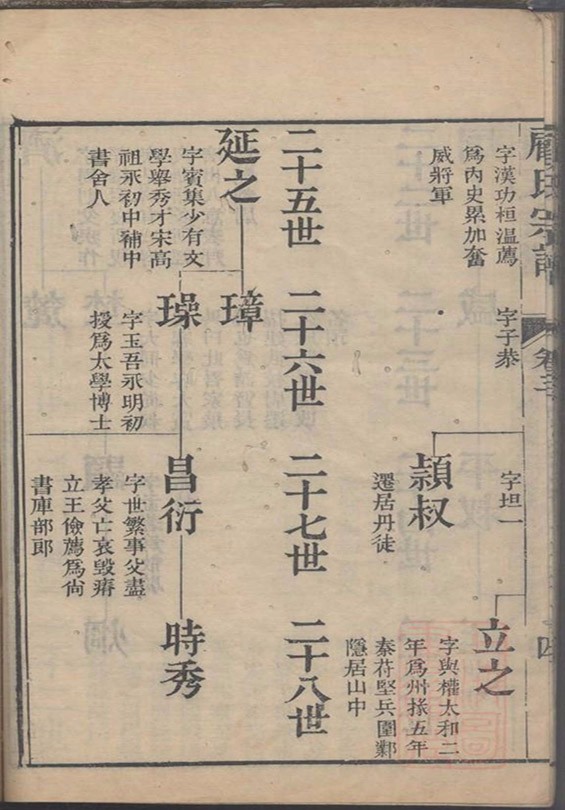 顧氏宗譜
卷三
字漢功桓溫薦
為內史累加奮
威將軍
字子恭
字坦一
立之
字與權太和二
年為州掾五年
秦苻堅兵圍鄴
隱居山中
頴叔
遷居丹徒
二十五世
二十六世
二十七世
二十八世
延之
字賓集少有文
學舉秀才宋高
祖永初中補中
書舍人
璋
璪
字玉吾永明初
授為太學博士
昌衍
字世繁事父盡
孝父亡哀毀瘠
立王儉薦為尚
書庫部郎
時秀